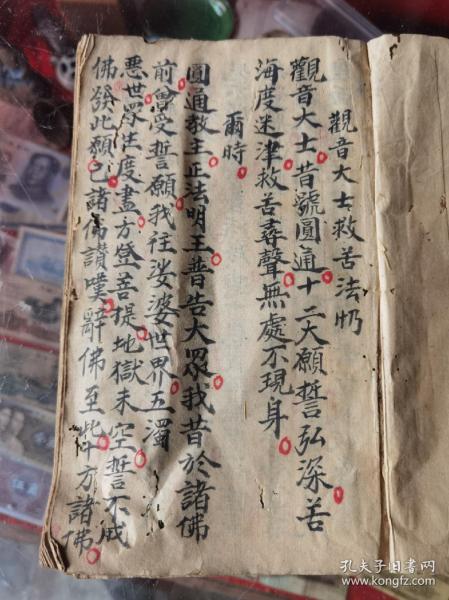 觀音大士救苦法忏
觀音大士昔號圓通十二大願誓弘深苦
海度迷津救苦尋聲無處不現身
爾時
圓通教主正法明王普告大眾我昔於諸佛
前曾受誓願我往娑婆世界五濁
惡世眾生度盡方登菩提地獄未空誓不成
佛發此願已諸佛讚嘆辭佛至此十方諸佛
孔夫子旧书网
www.kongfz.com